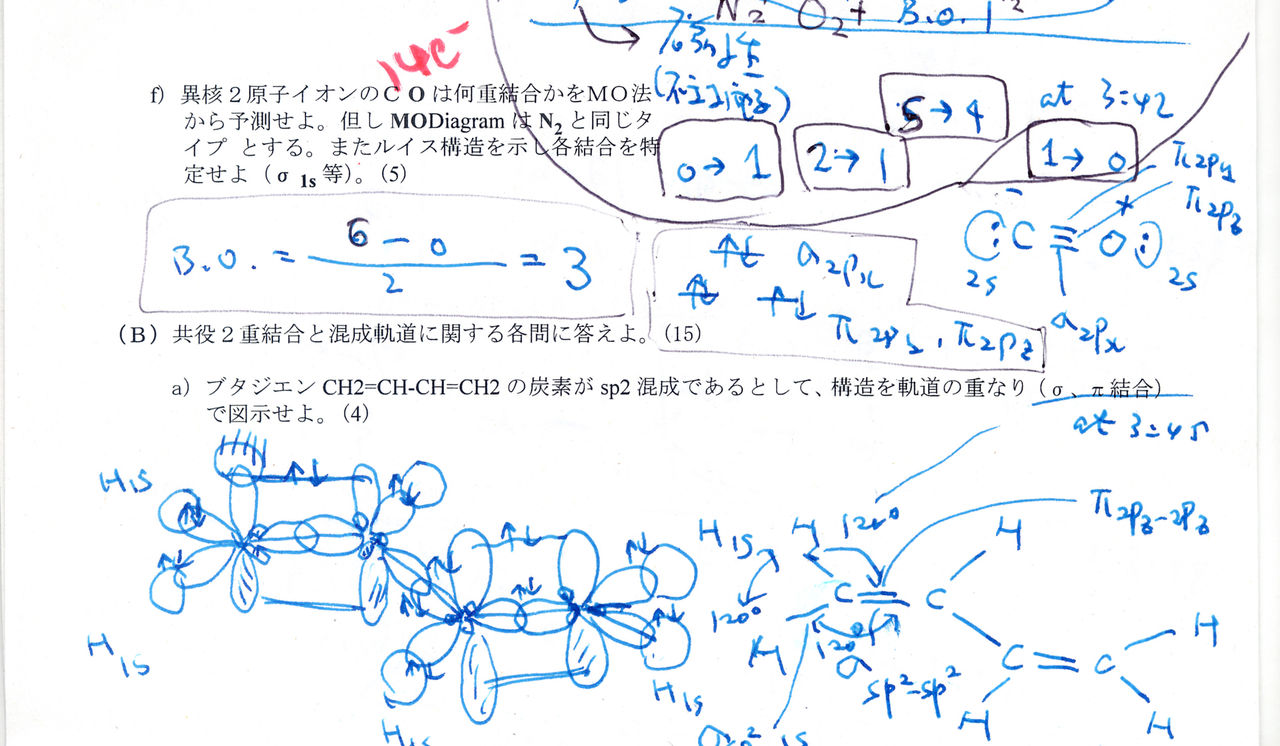 N2 O2+ B.O. 1
14e-
f) 異核2原子イオンのC Oは何重結合かをMO法
から予測せよ。但し MODiagram は N2 と同じタ
イプ とする。またルイス構造を示し各結合を特
定せよ（σ 1s 等）。(5)
0→1
2→1
5→4
at 3:42
1→0
π2py
π2pz
:C≡O:
2s
2s
σ2px
B.O. = 6-0 / 2 = 3
σ2px
π2py, π2pz
(B) 共役2重結合と混成軌道に関する各問に答えよ。(15)
a) ブタジエン CH2=CH-CH=CH2 の炭素が sp2 混成であるとして、構造を軌道の重なり（σ、π結合）
で図示せよ。(4)
at 3:45
H1s
H1s
H1s
H1s
H1s
H
120°
H
π2pz-2pz
C
C
120°
H
120°
σ
sp2-sp2
C
C
H
H
H